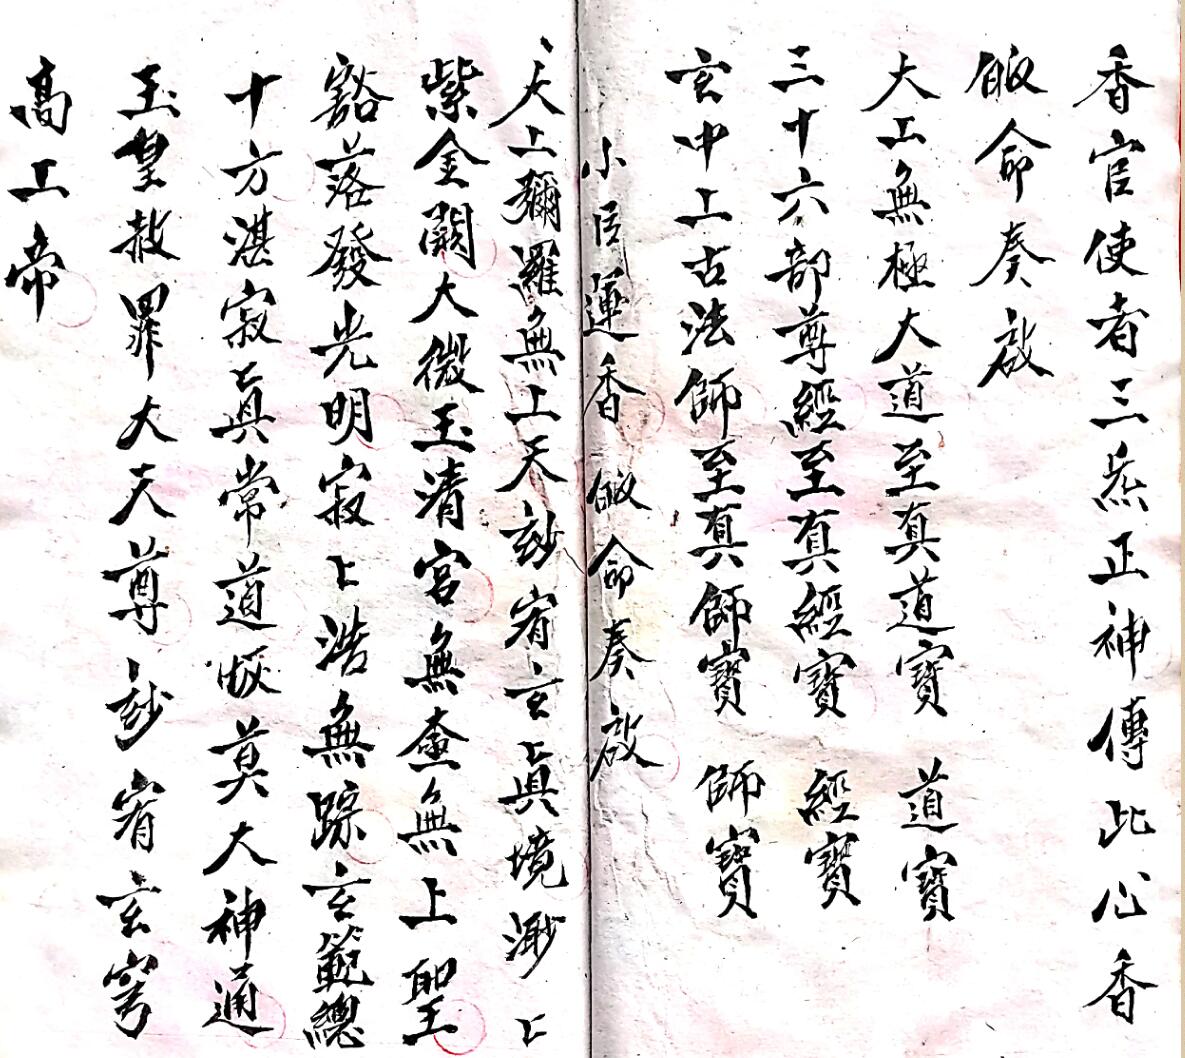 香官使者三炁正神傳此心香
皈命奏啟
大上無極大道至真道寶 道寶
三十六部尊經至真經寶 經寶
玄中上古法師至真師寶 師寶
小臣運香皈命奏啟
大上彌羅無上天玅有玄真境渺匕
紫金闕大微玉清宮無無上聖
豁落發光明寂匕浩無踪玄範總
十方湛寂真常道恢莫大神通
玉皇赦罪大天尊玅有玄穹
高上帝